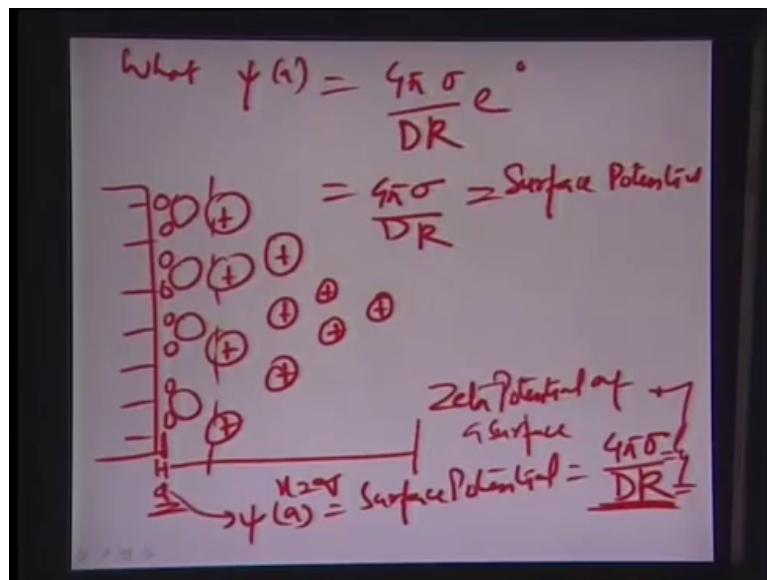 What ψ(a) = 4πσ/DR e°
= 4πσ/DR = Surface Potential
+ + + + + + + + + +
Zeta Potential of
a surface
a
x=a
ψ(a) = Surface Potential = 4πσ/DR